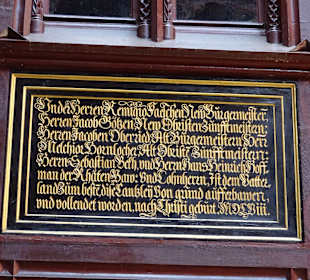 Under Herren Remigio Faeschen New Burgermeister,
Herren Jacob Götzen New Obristen Zunfftmeistern,
Herren Jacoben Oberried Alt Burgermeistern, Herr
Melchior Hornlocher Alt Obrist Zunfftmeistern,
Herrn Sebastian Beck, und Herrn Hans Heinrich Hoff-
man der Rhäten Baw- und Lohnherrn, ist dem Vatter-
land Zum beste dise Cantzley Von grund aufferbawen,
und vollendet worden, nach Christi geburt MDCVIII.